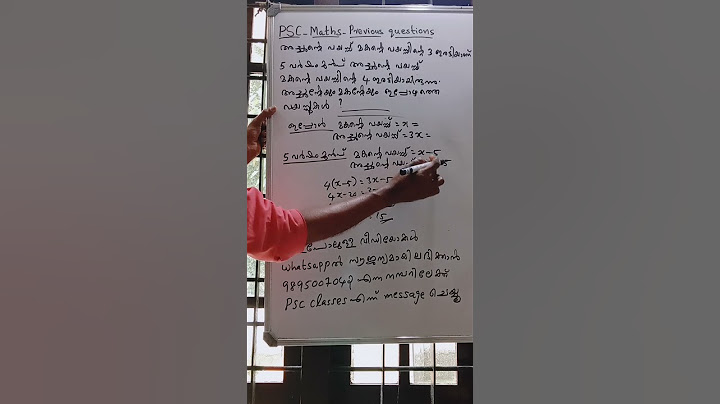 PSC - Maths - Previous questions
അച്ഛന്റെ വയസ്സ് മകന്റെ വയസ്സിന്റെ 3 ഇരട്ടിയാണ്
5 വർഷം മുൻപ് അച്ഛന്റെ വയസ്സ്
മകന്റെ വയസ്സിന്റെ 4 ഇരട്ടിയായിരുന്നു.
അച്ഛന്റേയും മകന്റേയും ഇപ്പോഴത്തെ
വയസ്സുകൾ ?
ഇപ്പോൾ മകന്റെ വയസ്സ് = x =
അച്ഛന്റെ വയസ്സ് = 3x =
5 വർഷം മുൻപ് മകന്റെ വയസ്സ് = x-5
അച്ഛന്റെ 5
4(x-5) = 3x-5
4x-20 =
15
വീഡിയോകൾ
whatsappൽ സൗജന്യമായി ലഭിക്കാൻ
9895007042 എന്ന നമ്പറിലേക്ക്
PSC classes എന്ന് message ചെയ്യൂ